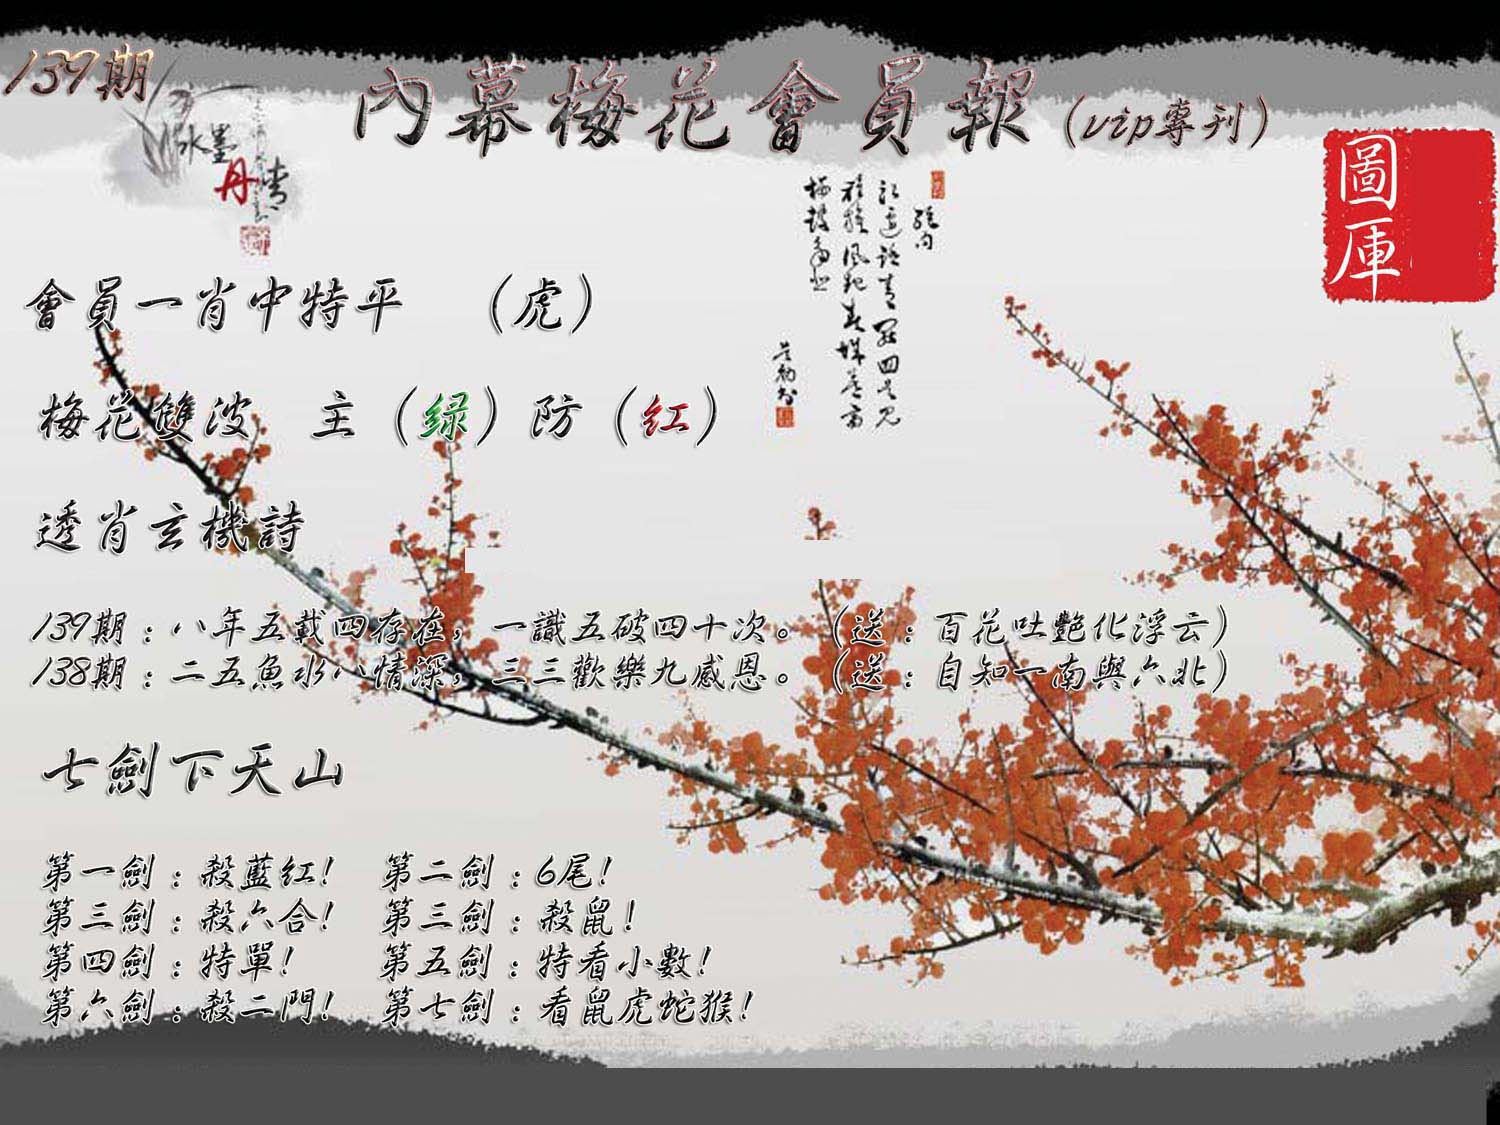 139期
內幕梅花會員報(vip專刊)
水墨
丹青
圖庫
會員一肖中特平 （虎）
梅花雙波 主（綠）防（紅）
透肖玄機詩
139期：八年五載四存在，一識五破四十次。（送：百花吐艷化浮云）
138期：二五魚水八情深，三三歡樂九感恩。（送：自知一南與六北）
七劍下天山
第一劍：殺藍紅! 第二劍：6尾!
第三劍：殺六合! 第三劍：殺鼠!
第四劍：特單! 第五劍：特看小數!
第六劍：殺二門! 第七劍：看鼠虎蛇猴!